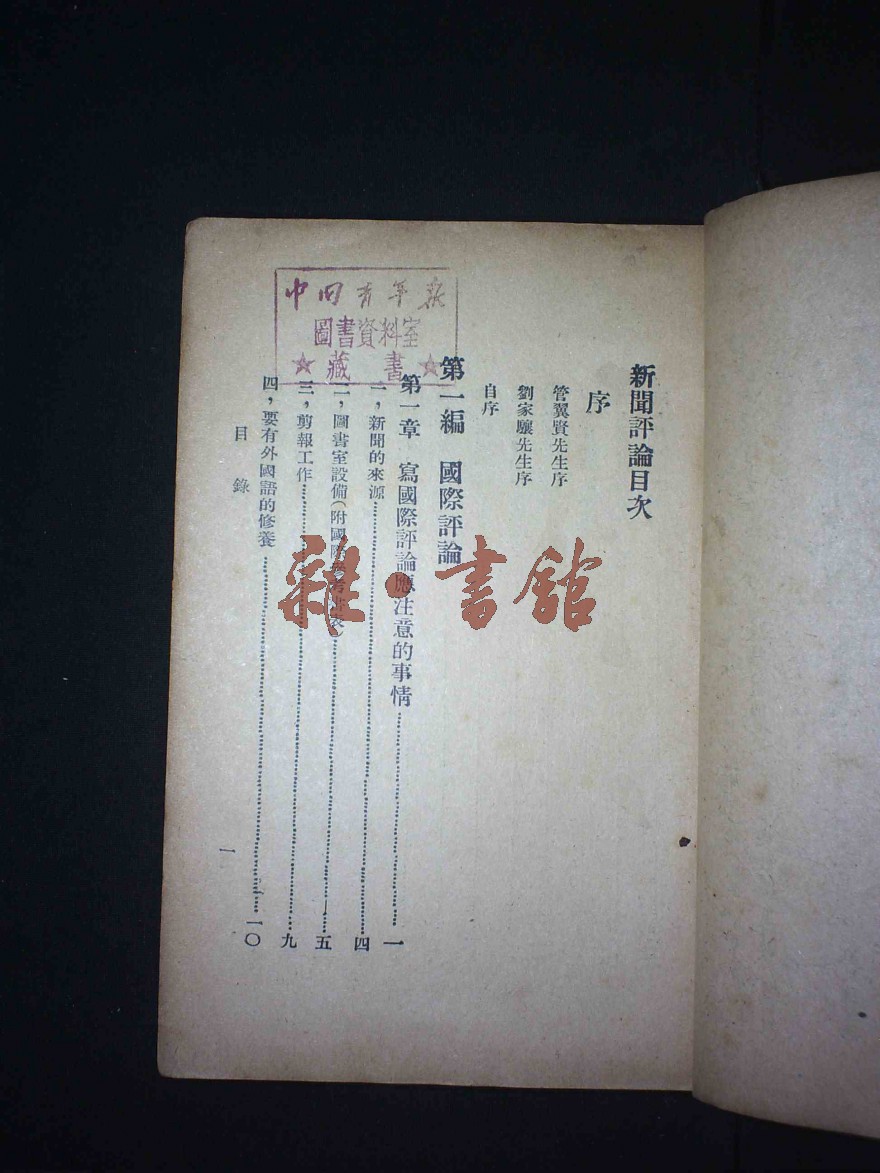 新聞評論目次
序
管翼賢先生序
劉家驤先生序
自序
第一編 國際評論
第一章 寫國際評論應注意的事情 一
一，新聞的來源 四
二，圖書室設備（附國際參考書表） 五
三，剪報工作 九
四，要有外國語的修養 一〇
目錄
一
中国青年报
圖書資料室
藏書
雜·書館